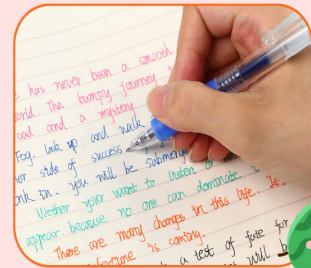 has never been a smooth
world. The bumpy journey
and a mystery
Fog. look up and walk
side of success
in. you will be submerg
Wether your want to listen or
appear. because no one can dominate
There are many changes in this life.
fortune is coming.
a test of fate for
will